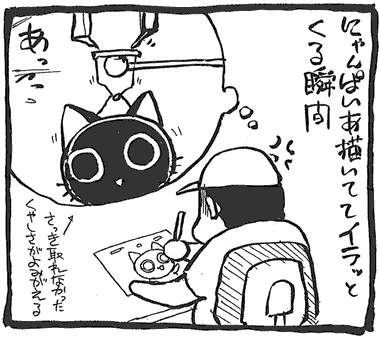 にゃんぱいあ描いててイラッと
くる瞬間
あっっっ
さっき取れなかった
くやしさがよみがえる